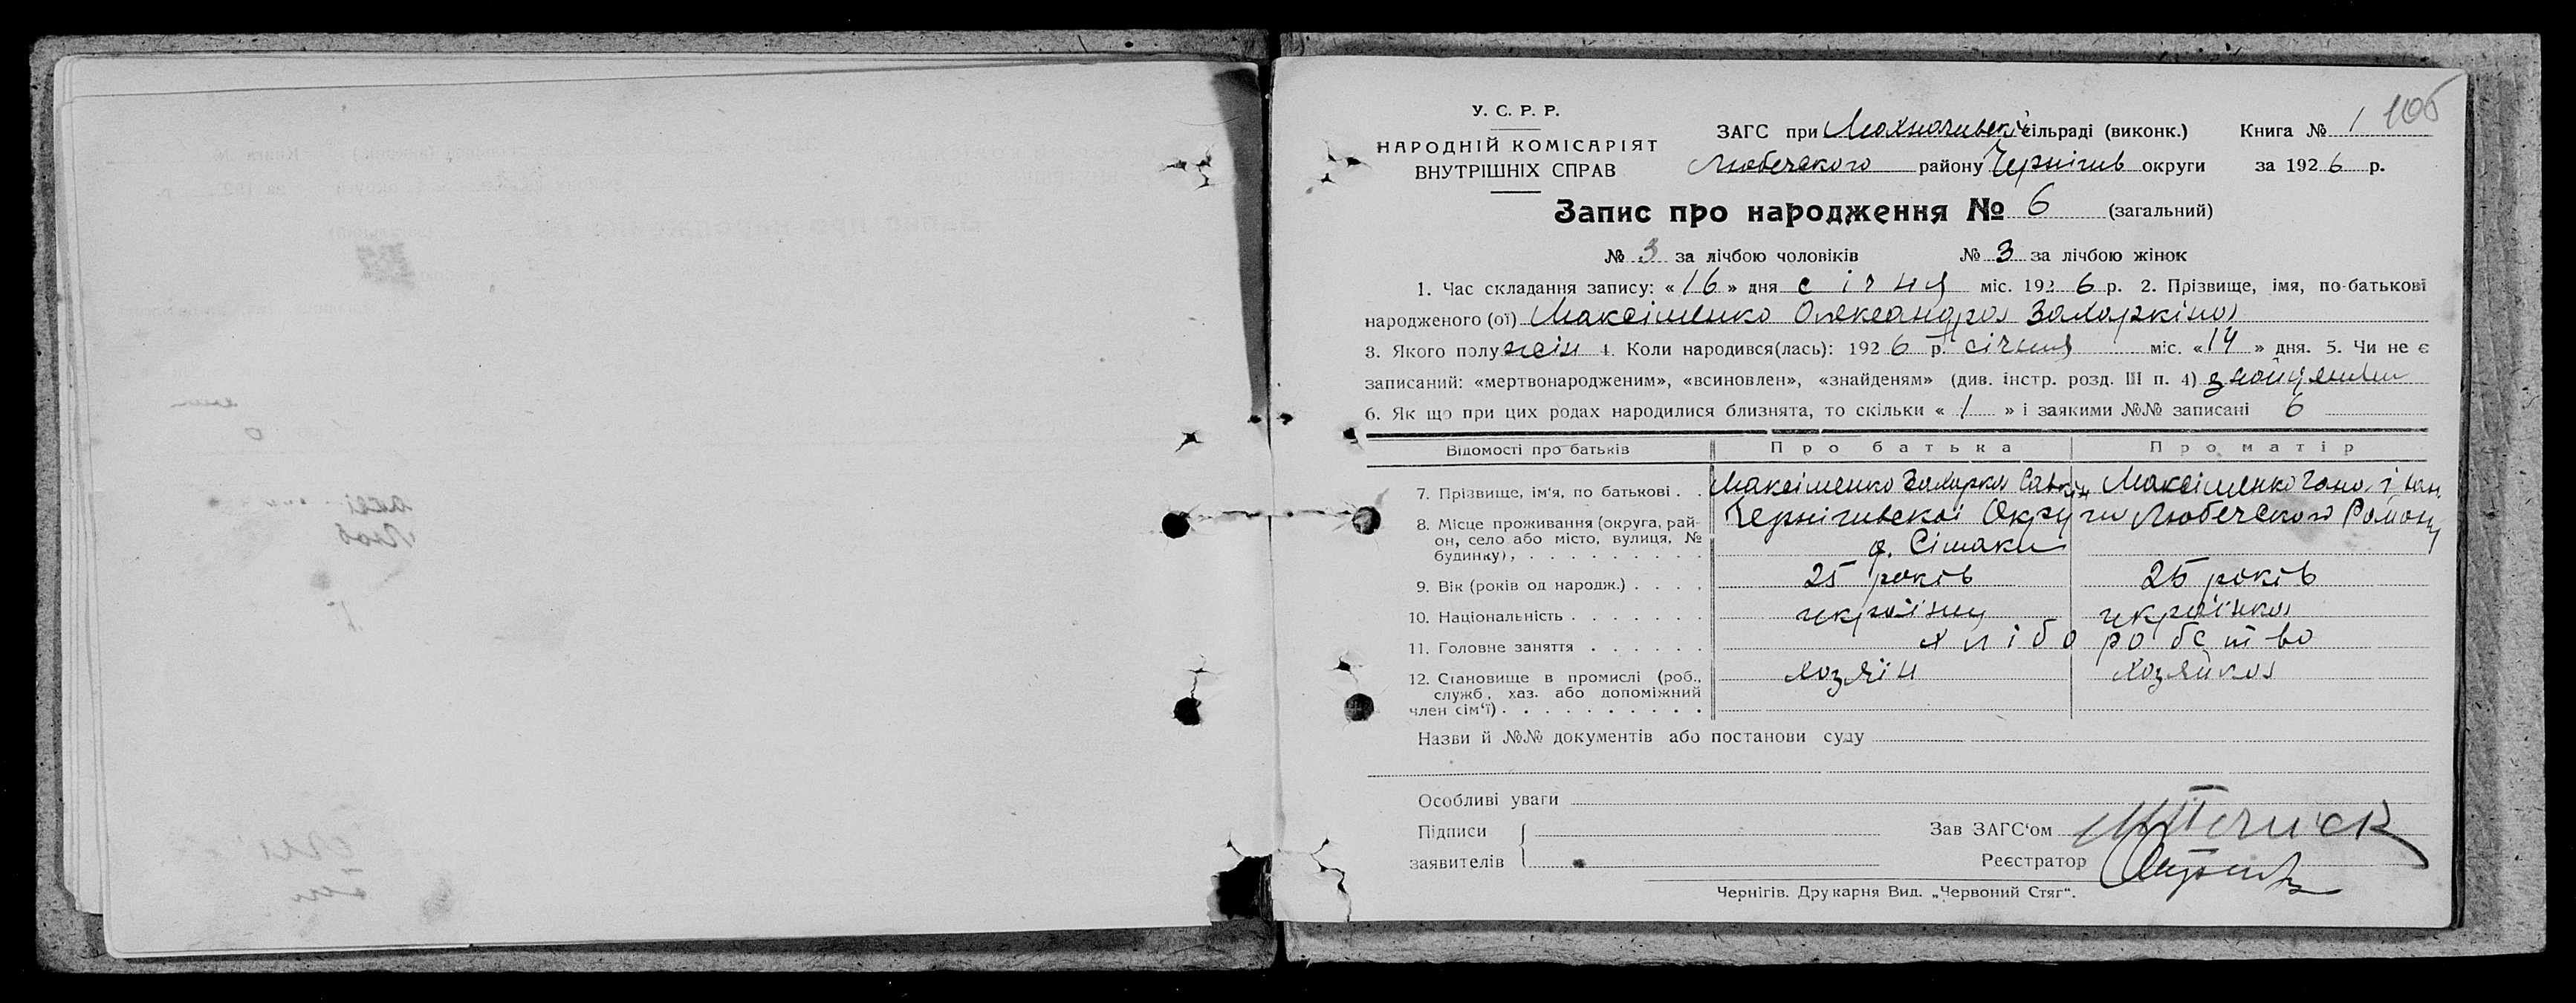 105
У. С. Р. Р.
НАРОДНІЙ КОМІСАРІЯТ
ВНУТРІШНІХ СПРАВ
ЗАГС при сільраді (виконк.) Книга № 1
Любечского району Чернігив округи за 1926 р.
Запис про народження № 6 (загальний)
№ 3 за лічбою чоловіків № 3 за лічбою жінок
1. Час складання запису: «16» дня січня міс. 1926 р. 2. Прізвище, імя, по-батькові
народженого (ої) Максіменко Олександра Захаркіна
3. Якого полу жін 4. Коли народився(лась): 1926 р. січня міс. «14» дня. 5. Чи не є
записаний: «мертвонародженим», «всиновлен», «знайденям» (див. інстр. розд. III п. 4)
6. Як що при цих родах народилися близнята, то скільки « 1 » і заякими №№ записані 6
Відомості про батьків Про батька Про матір
7. Прізвище, ім'я, по батькові . . Максіменко Захарка Максіменко Гана
8. Місце проживання (округа, рай- Чернігивскоі Округи Любечского Району
он, село або місто, вулиця, № Сімаки
будинку), . . . . . . . . . .
9. Вік (років од народж.) . . . . 25 років 25 років
10. Національність . . . . . . . україниц українка
11. Головне заняття . . . . . . хліборобство
12. Становище в промислі (роб., хозяін хозяйка
служб., хаз. або допоміжний
член сім'ї) . . . . . . . . . .
Назви й №№ документів або постанови суду
Особливі уваги
Підписи
заявителів
Зав ЗАГС'ом
Реєстратор
Чернігів. Друкарня Вид. „Червоний Стяг“.